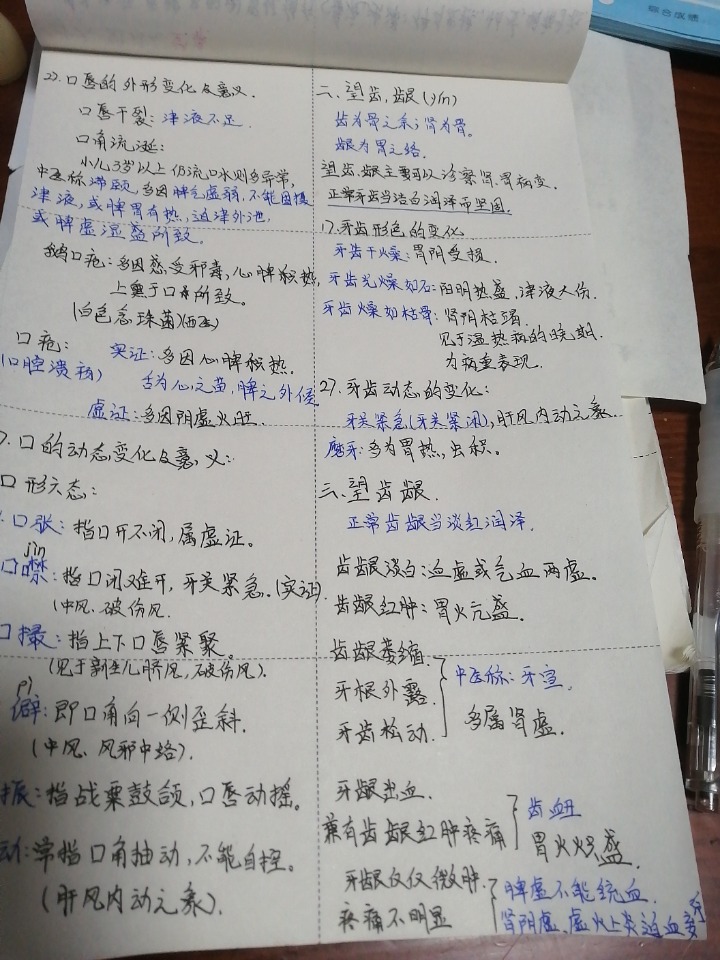 综合成绩
2). 口唇的外形变化及意义.
口唇干裂: 津液不足.
口角流涎:
小儿3岁以上仍流口水则多异常,
中医称滞颐, 多因脾气虚弱, 不能固摄
津液, 或脾胃有热, 迫津外泄,
或脾虚湿盛所致.
鹅口疮: 多因感受邪毒, 心脾积热,
上熏于口所致。
(白色念珠菌)(西医)
口疮: 实证: 多因心脾积热.
(口腔溃疡) 舌为心之苗, 脾之外候
虚证: 多因阴虚火旺.
口的动态变化及意义:
口形六态:
口张: 指口开不闭, 属虚证。
jìn
口噤: 指口闭难开, 牙关紧急. (实证)
(中风、破伤风.
口撮: 指上下口唇紧聚。
(见于新生儿脐风, 破伤风).
pì
僻: 即口角向一侧歪斜.
(中风、风邪中络).
振: 指战栗鼓颌, 口唇动摇。
动: 常指口角抽动, 不能自控。
(肝风内动之象).
二、望齿、龈(yín)
齿为骨之余; 肾为骨。
龈为胃之络.
望齿、龈主要可以诊察肾、胃病变.
正常牙齿当洁白润泽而坚固.
1). 牙齿形色的变化
牙齿干燥: 胃阴受损.
牙齿光燥如石: 阳明热盛, 津液大伤.
牙齿燥如枯骨: 肾阴枯竭.
见于温热病的晚期.
为病重表现.
2). 牙齿动态的变化:
牙关紧急(牙关紧闭), 肝风内动之象.
磨牙: 多为胃热, 虫积。
三、望齿龈.
正常齿龈当淡红润泽.
齿龈淡白: 血虚或气血两虚。
齿龈红肿: 胃火亢盛.
齿龈萎缩.
牙根外露. 中医称: 牙宣.
牙齿松动. 多属肾虚.
牙龈出血. 齿衄
兼有齿龈红肿疼痛 胃火炽盛.
牙龈仅仅微肿. 脾虚不能统血.
疼痛不明显 肾阴虚、虚火上炎迫血妄